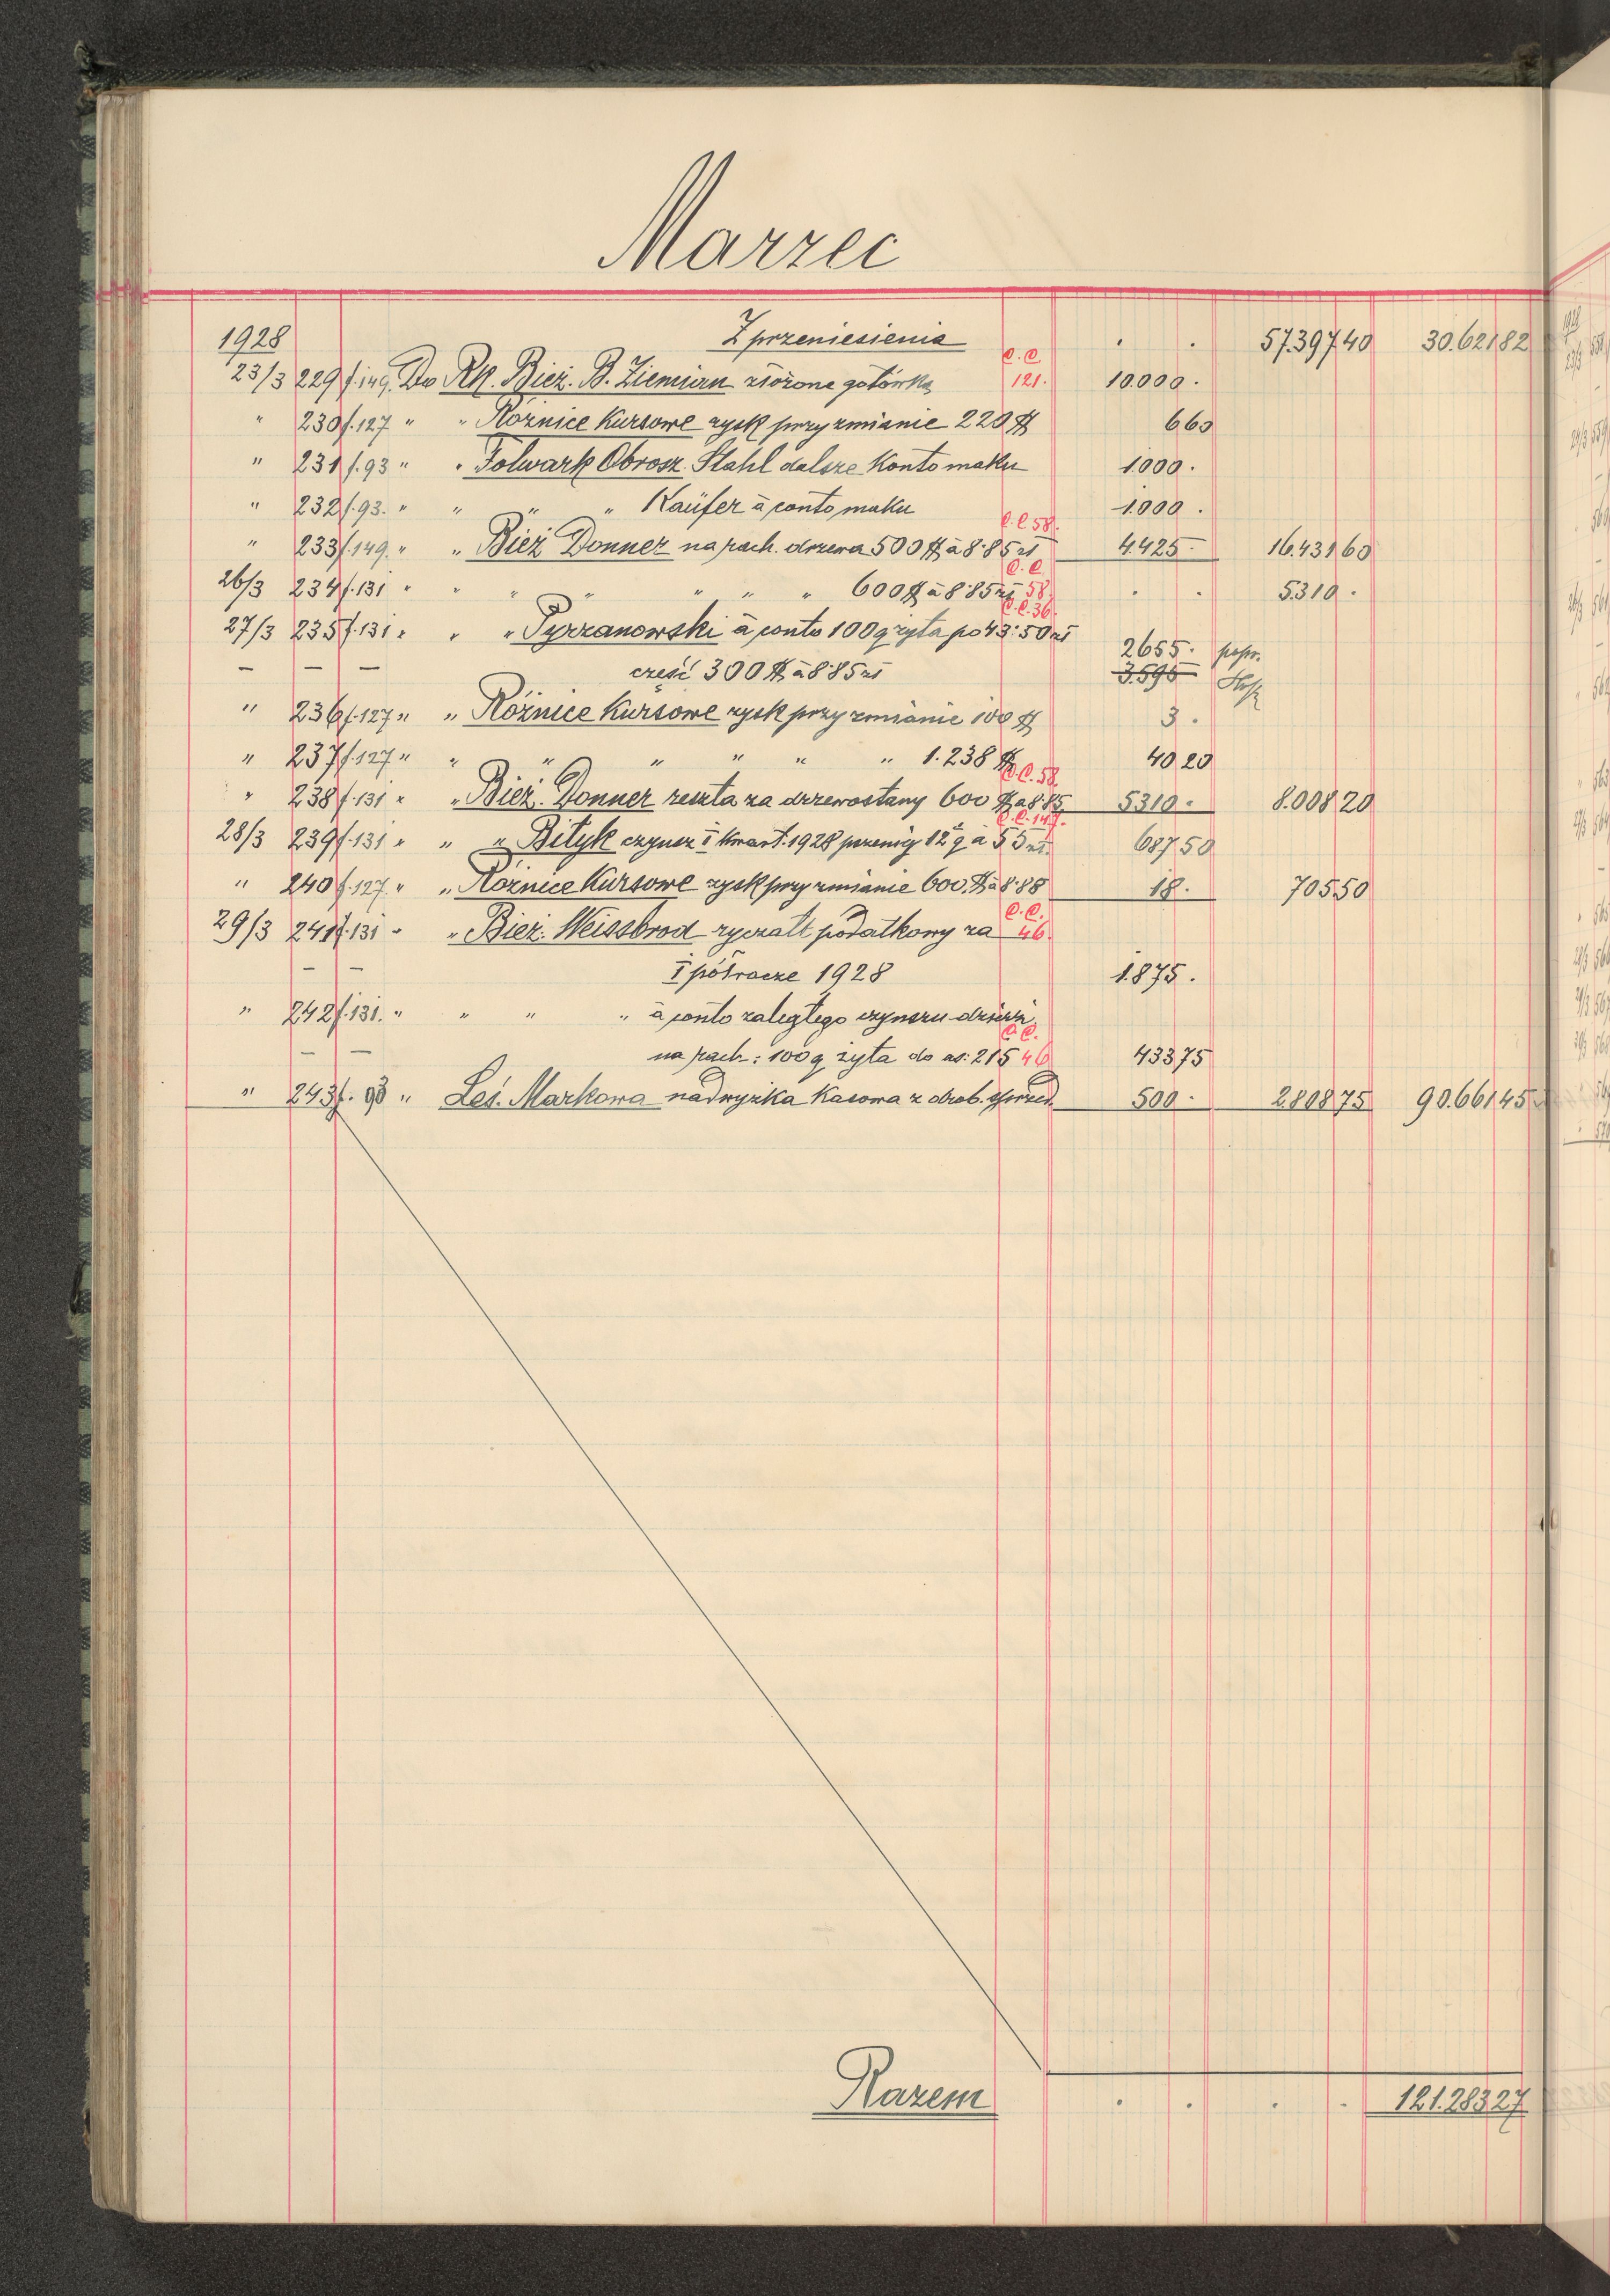 Marzec
1928 Z przeniesienia . . 57.397 40 30.621 82
23/3 229 f.149. Do Rk. Bież. B. Ziemian złożone gotówką C.C. 121. 10.000 .
" 230 f.127 " " Różnice Kursowe zysk przy zmianie 220 $ 6 60
" 231 f.93 " " Folwark Obrosz. Stahl dalsze Konto maku 1.000 .
" 232 f.93. " " " " Kaüfer à conto maku 1.000 .
" 233 f.149. " " Bież Donner na rach. drzewa 500 $ à 8.85 zł C.C 58. 4.425 - 16.431 60
26/3 234 f.131 " " " " " " " 600 $ à 8.85 zł C.C. 58 . . 5.310 .
27/3 235 f.131 " " " Pyrzanowski à conto 100 q żyta po 43.50 zł C.C. 36.
— — — cześć 300 $ à 8.85 zł 2655. 3.595 popr.
" 236 f.127 " " Różnice Kursowe zysk przy zmianie 100 $ 3 .
" 237 f.127 " " " " " " " 1.238 $ 40 20
" 238 f.131 " " Bież. Donner reszta za drzewostany 600 $ à 8.85 C.C. 58. 5310 - 8.008 20
28/3 239 f.131 " " " Bityk czynsz I kwart. 1928 pszenicy 12 q à 55 zł. C.C. 147. 687 50
" 240 f.127. " " Różnice Kursowe zysk przy zmianie 600 $ à 8.88 18. 705 50
29/3 241 f.131 " " Bież. Weissbrod ryczałt podatkowy za C.C. 46.
— — I półrocze 1928 1.875 .
" 242 f.131. " " " " à conto zaległego czynszu dzierż.
— — na rach: 100 q żyta do as: 215 C.C. 46 433 75
" 243 f. 93 " Leś. Markowa nadwyżka Kasowa z drob. sprzed. 500 - 2.808 75 90.661 45
Razem . . . . 121.283 27